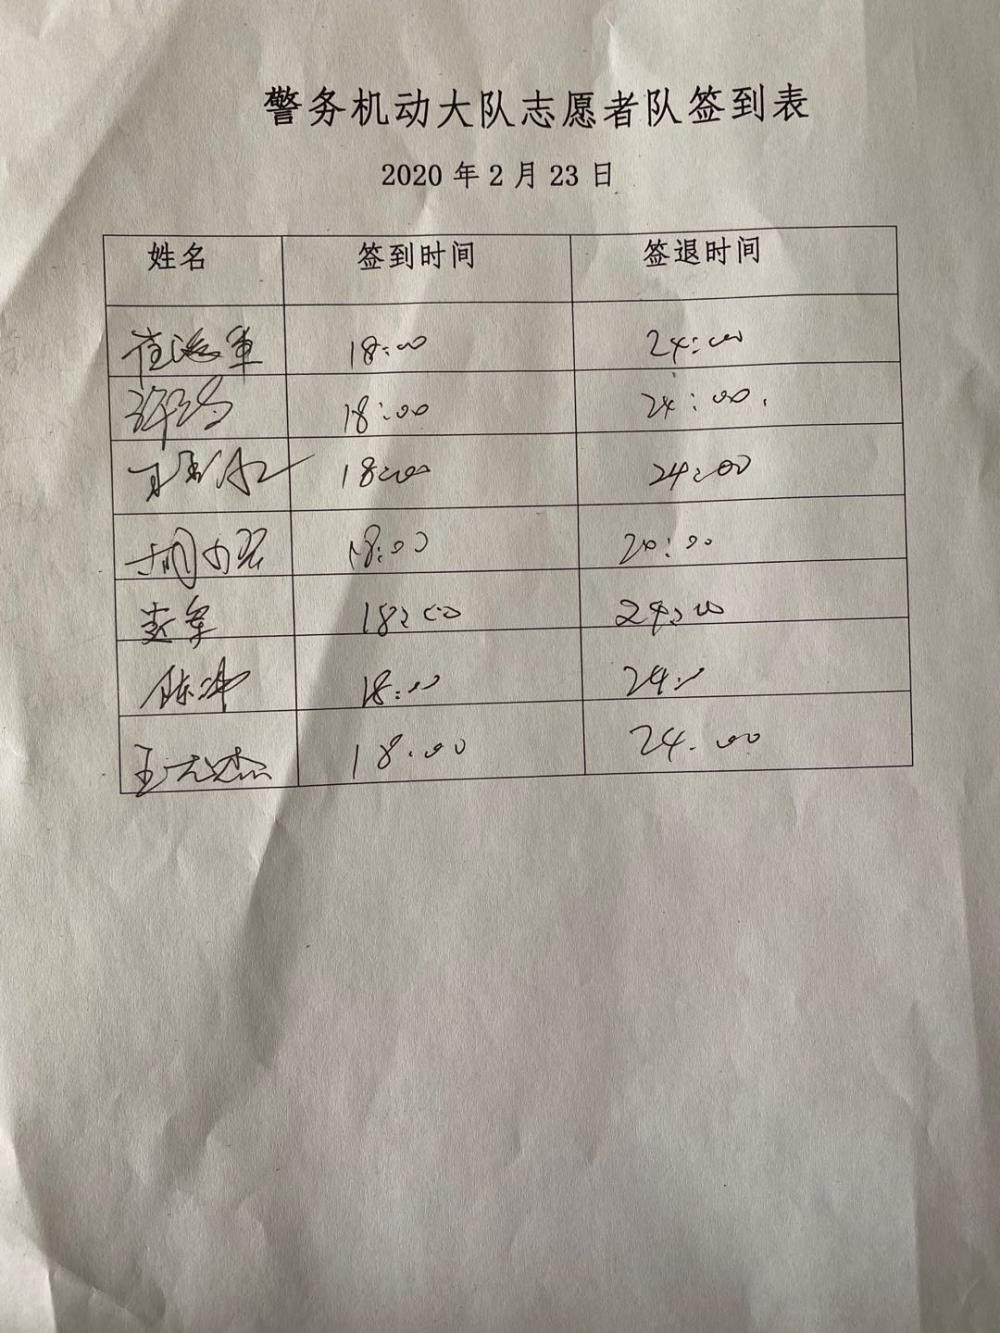 警务机动大队志愿者队签到表
2020 年 2 月 23 日
姓名 签到时间 签退时间
18:00 24:00
许 18:00 24:00.
18:00 24:00
18:00 20:00
18:00 24:00
陈冲 18:00 24:
王 杰 18.00 24.00